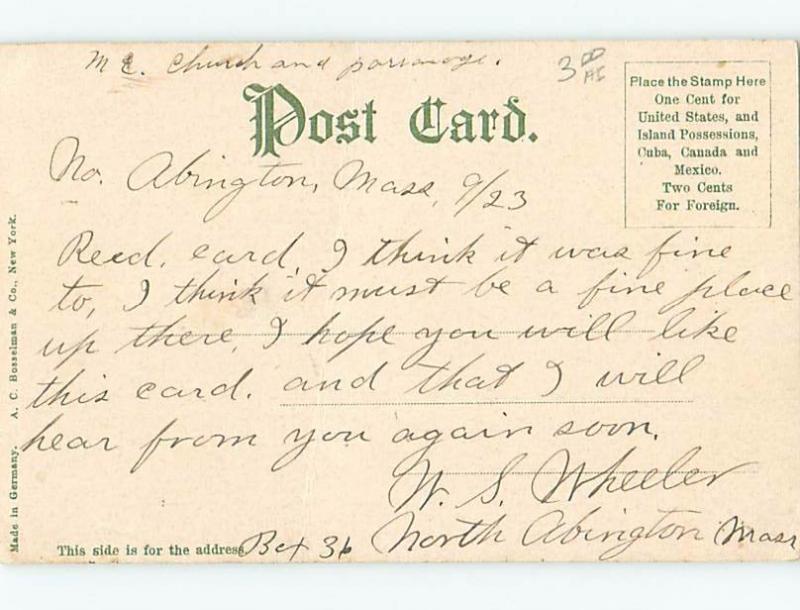 M E. church and parsonage.
3
Post Card.
Place the Stamp Here
One Cent for
United States, and
Island Possessions,
Cuba, Canada and
Mexico.
Two Cents
For Foreign.
No. Abington, Mass, 9/23
Recd. card. I think it was fine
to, I think it must be a fine place
up there, I hope you will like
this card. and that I will
hear from you again soon.
W. S. Wheeler
Box 36 North Abington Mass
This side is for the address
Made in Germany. A. C. Bosselman & Co., New York.